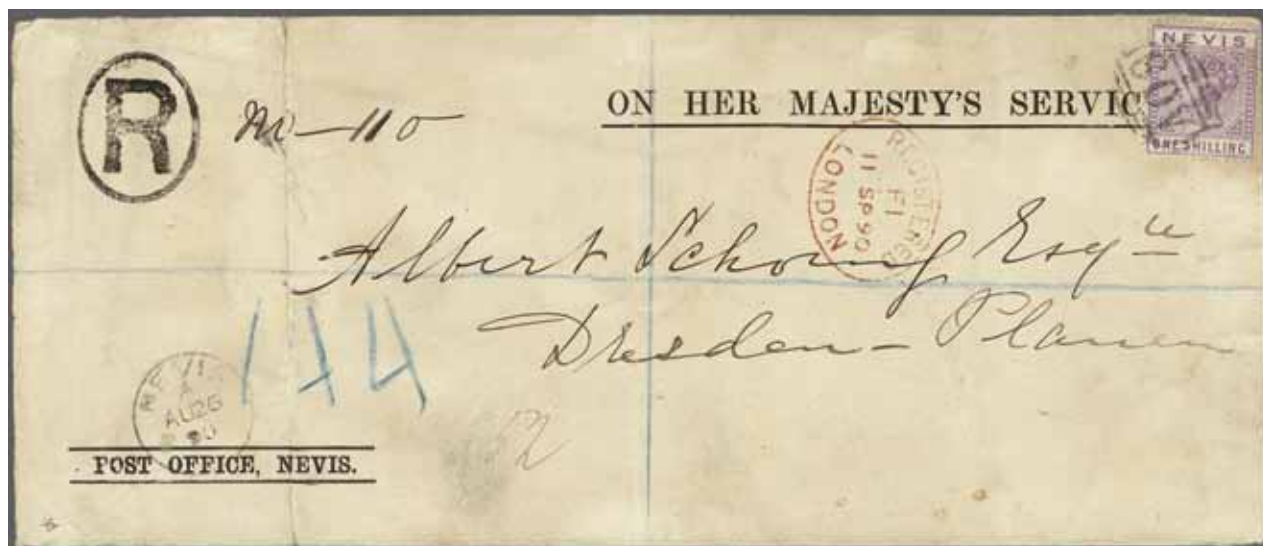 NEVIS
R
No - 110
ON HER MAJESTY'S SERVIC
A09
ONE SHILLING
REGISTERED
F1
11 SP 90
LONDON
Albert Schoing Esqre
Dresden - Planen
144
NEVIS
A
AU 25
90
POST OFFICE, NEVIS.